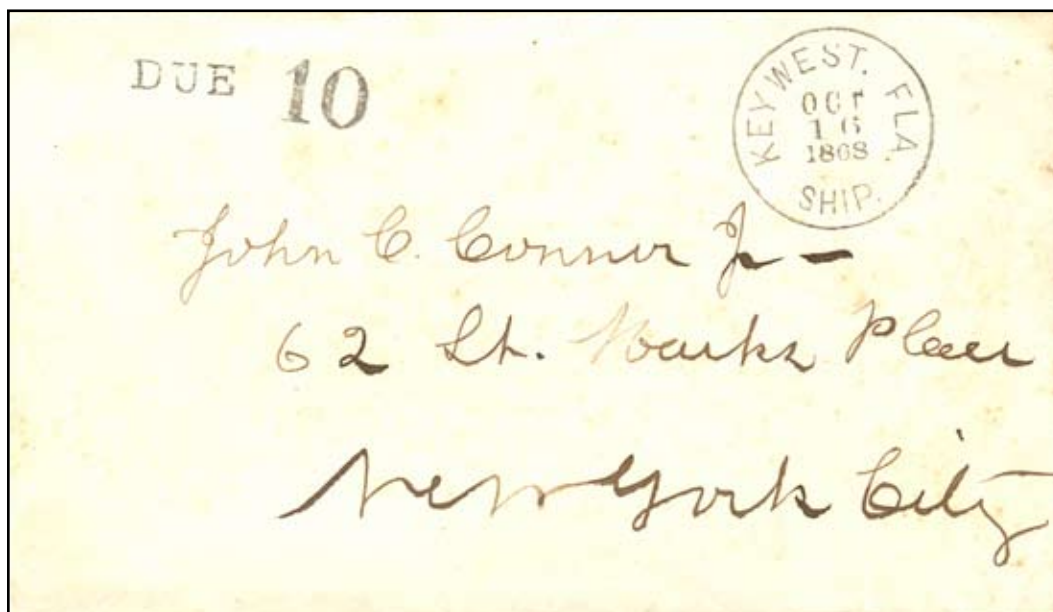 DUE 10
KEY WEST. FLA.
OCT
16
1868
SHIP.
John C. Conner Jr —
62 St. Marks Place
New York City